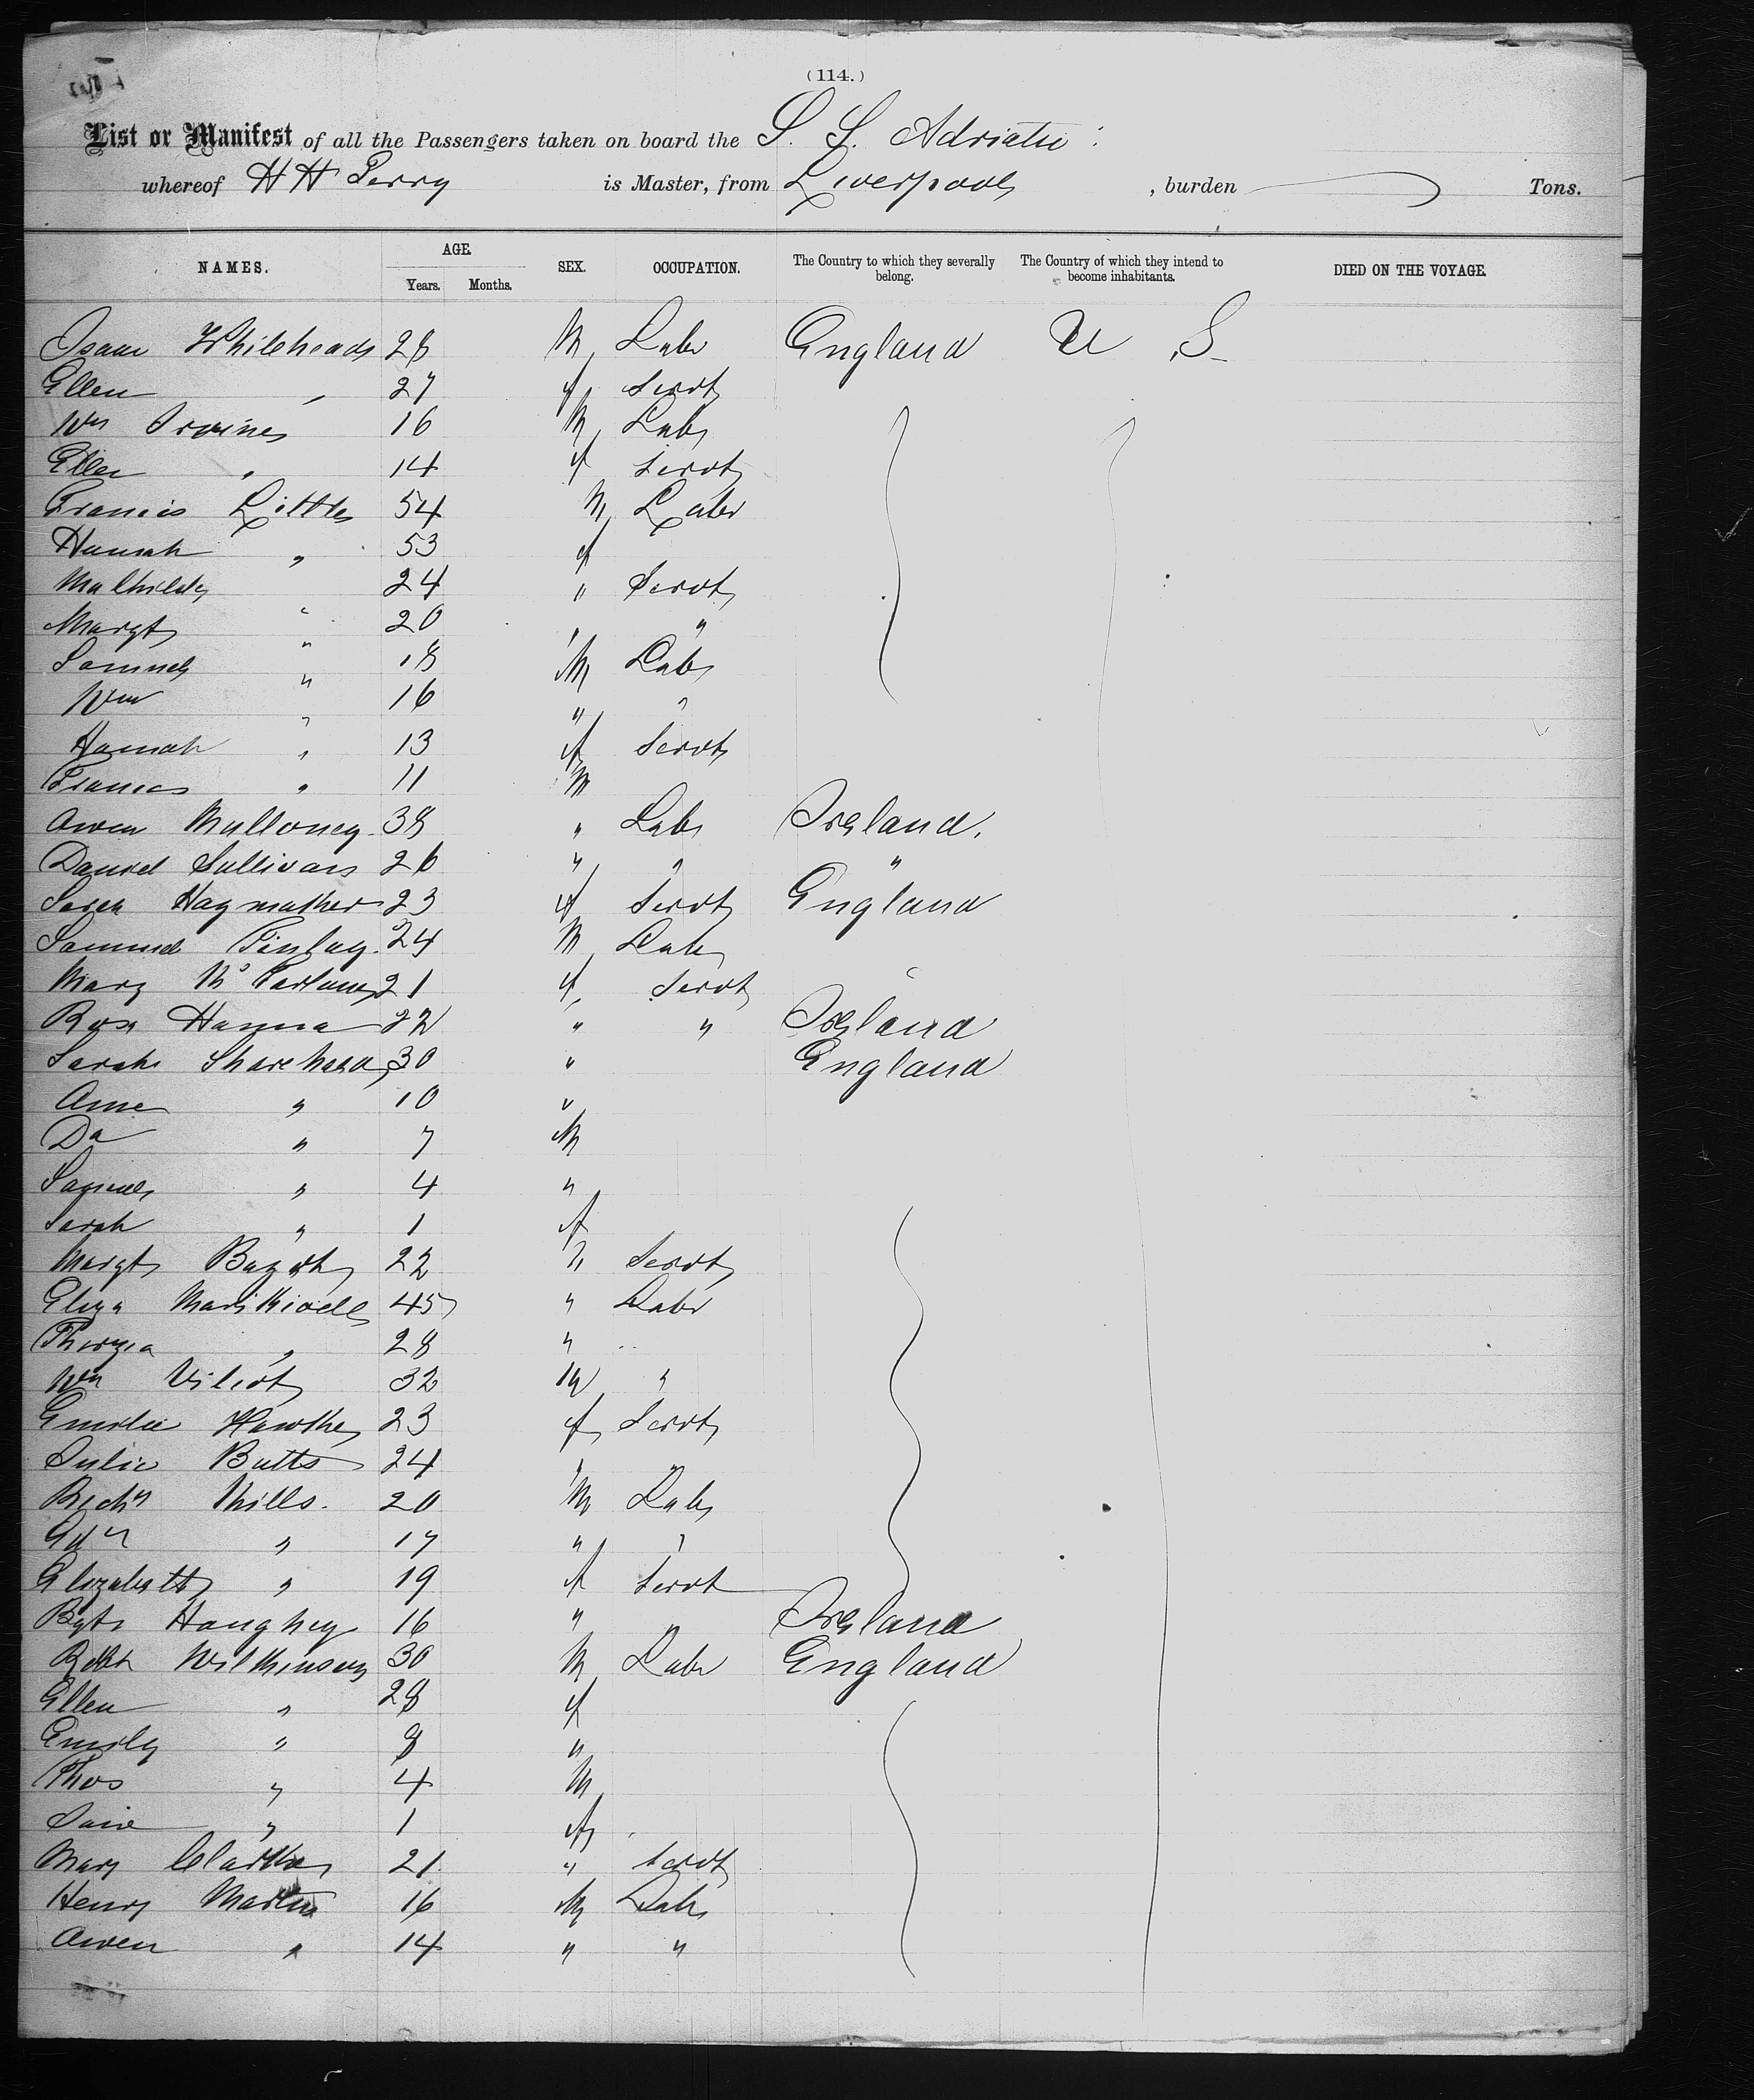 (114.)
List or Manifest of all the Passengers taken on board the S. S. Adriatic
whereof H H Perry is Master, from Liverpool, burden Tons.
NAMES. AGE. SEX. OCCUPATION. The Country to which they severally belong. The Country of which they intend to become inhabitants. DIED ON THE VOYAGE.
Years. Months.
Isaac Whitehead 28 M Labr England U S
Ellen " 27 f Servt
Wm Irvine 16 M Labr
Ellen " 14 f Servt
Francis Little 54 M Labr
Hannah " 53 f
Mathilda " 24 " Servt
Margt " 20 " "
Samuel " 18 M Labr
Wm " 16 " "
Hannah " 13 f Servt
Francis " 11 M
Owen Mulloney 38 " Labr Ireland.
Daniel Sullivan 26 " " "
Sarah Haymather 23 f Servt England
Samuel Finlay 24 M Labr
Mary 21 f Servt
Rose Hanna 22 " " Ireland
Sarah 30 " England
Anne " 10 "
Da " 7 M
Samuel " 4 "
Sarah " 1 f
Margt 22 " Servt
Eliza 45 " Labr
" 28 "
Wm 32 M "
Emilie 23 f Servt
Julia Butts 24 " "
Richd Mills. 20 M Labr
" 17 " "
Elizabeth " 19 f Servt
Bgt Haughey 16 " " Ireland
Robt Wilkinson 30 M Labr England
Ellen " 28 f
Emily " 8 "
Thos " 4 M
" 1 f
Mary Clarke 21 " Servt
Henry Martin 16 M Labr
Owen " 14 " "